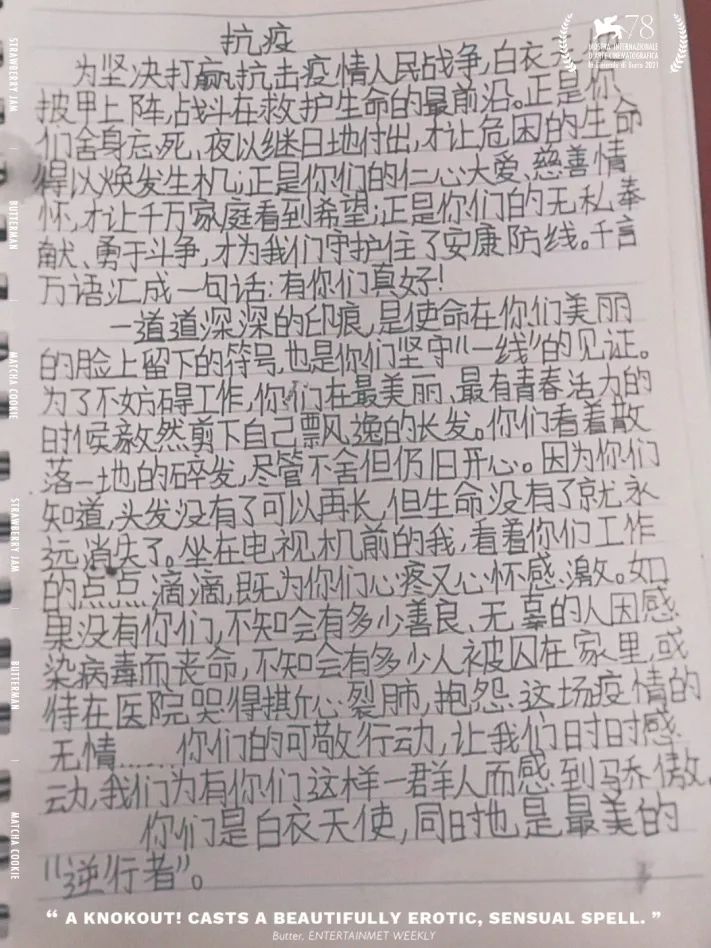 抗疫
为坚决打赢抗击疫情人民战争,白衣天
披甲上阵,战斗在救护生命的最前沿。正是你
们舍身忘死,夜以继日地付出,才让危困的生命
得以焕发生机;正是你们的仁心大爱、慈善情
怀,才让千万家庭看到希望;正是你们的无私奉
献、勇于斗争,才为我们守护住了安康防线。千言
万语汇成一句话:有你们真好!
一道道深深的印痕,是使命在你们美丽
的脸上留下的符号,也是你们坚守“一线”的见证。
为了不妨碍工作,你们在最美丽、最有青春活力的
时候毅然剪下自己飘逸的长发。你们看着散
落一地的碎发,尽管不舍但仍旧开心。因为你们
知道,头发没有了可以再长,但生命没有了就永
远消失了。坐在电视机前的我,看着你们工作
的点点滴滴,既为你们心疼又心怀感激。如
果没有你们,不知会有多少善良、无辜的人因感
染病毒而丧命,不知会有多少人被囚在家里,或
待在医院哭得撕心裂肺,抱怨这场疫情的
无情……你们的可敬行动,让我们时时感
动,我们为有你们这样一群人而感到骄傲。
你们是白衣天使,同时也是最美的
“逆行者”。
78
MOSTRA INTERNAZIONALE
D'ARTE CINEMATOGRAFICA
la Biennale di Venezia 2021
STRAWBERRY JAM
BUTTERMAN
MATCHA COOKIE
STRAWBERRY JAM
BUTTERMAN
MATCHA COOKIE
“ A KNOKOUT! CASTS A BEAUTIFULLY EROTIC, SENSUAL SPELL. ”
Butter, ENTERTAINMET WEEKLY